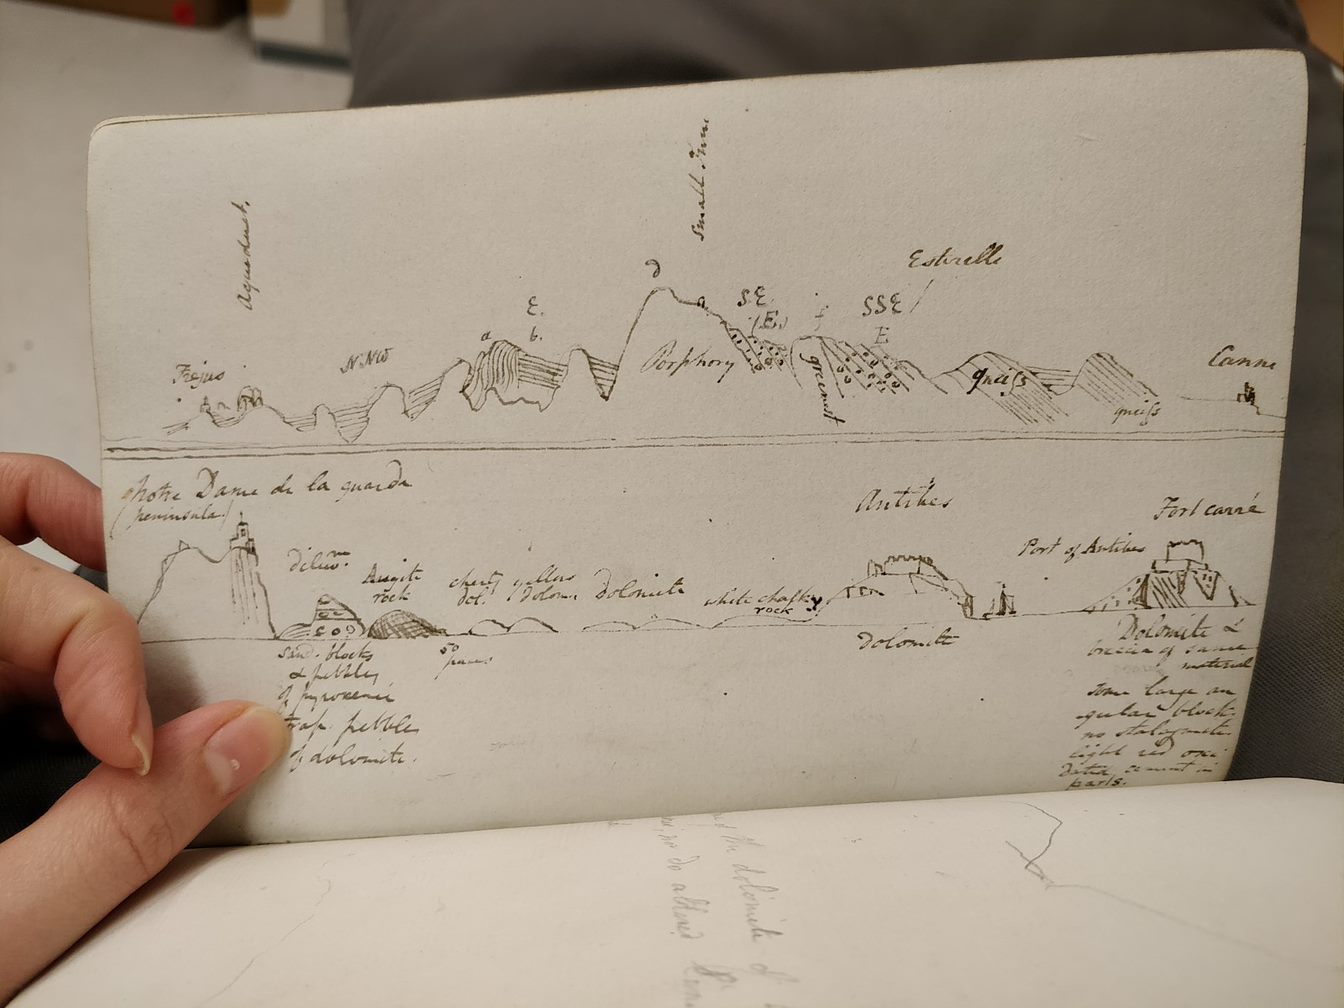 Aqueduct.
Small Inn
Estrelle
d
a
SE
(E.)
SSE
E
E.
b.
a
N.NW
Frejus
Porphory
greenst
gneiſs
gneiſs
Canne
Notre Dame de la guarda
(peninsula.)
Antibes
Fort carré
Port of Antibes
diluvm.
Augite
rock
cherty
dol.
yellow
dolom.
Dolomite
white chalky
rock
dolomite
Sand. blocks
& pebbles
of pyroxenic
trap. pebbles
of dolomite.
Dolomite &
breccia of same
material
some large an
gular blocks
no stalagmite.
light red oxi
dated cement in
parts.
the dolomite of
no do altered